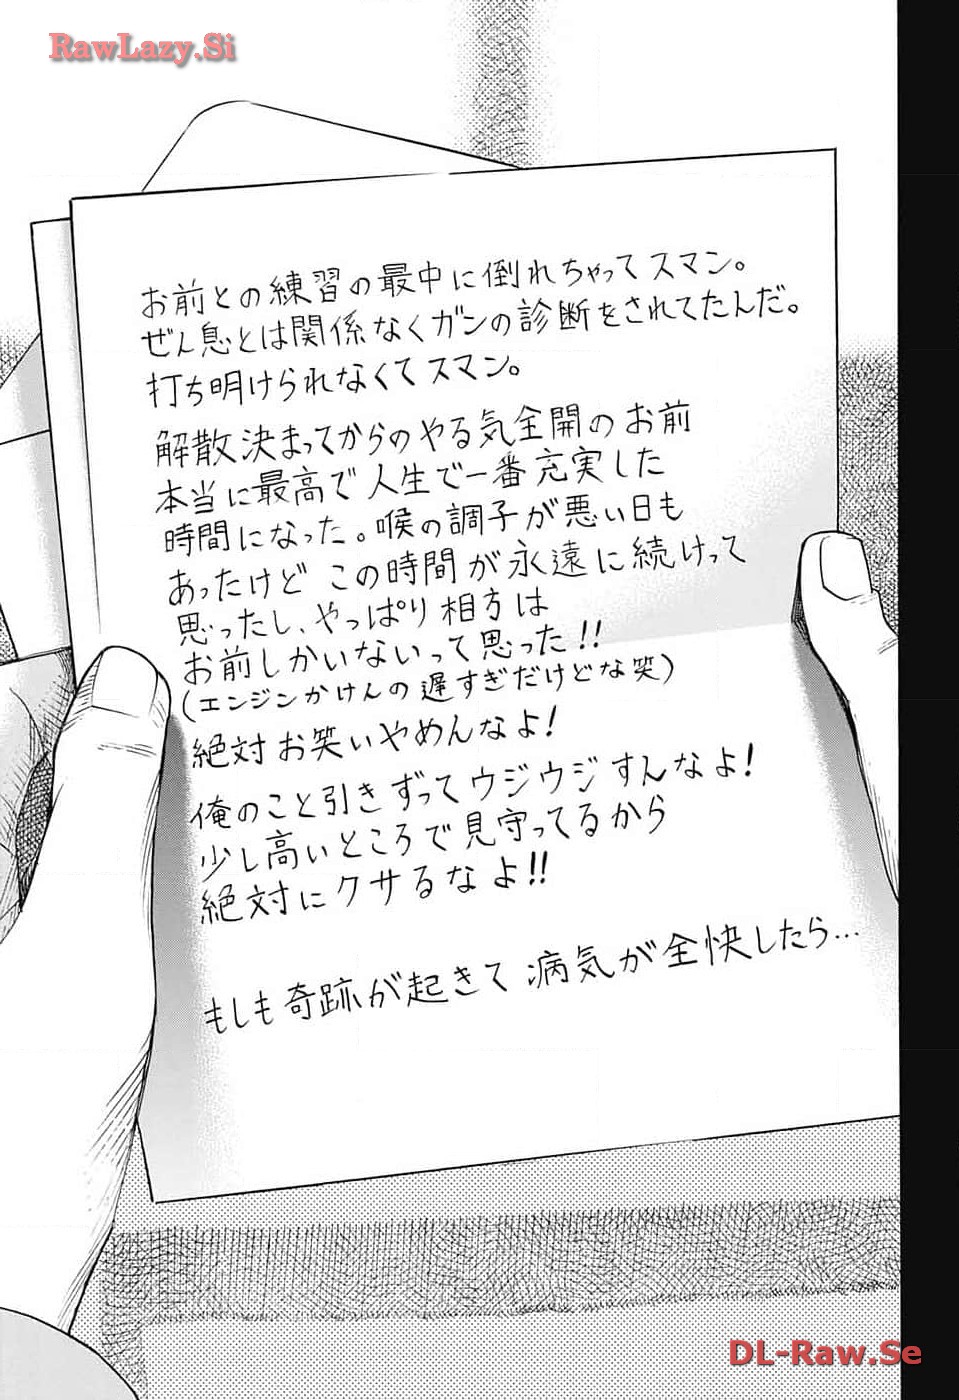 RawLazy.Si
お前との練習の最中に倒れちゃってスマン。
ぜん息とは関係なくガンの診断をされてたんだ。
打ち明けられなくてスマン。
解散決まってからのやる気全開のお前
本当に最高で人生で一番充実した
時間になった。喉の調子が悪い日も
あったけど この時間が永遠に続けって
思ったし、やっぱり相方は
お前しかいないって思った!!
(エンジンかけんの遅すぎだけどな笑)
絶対お笑いやめんなよ!
俺のこと引きずってウジウジすんなよ!
少し高いところで見守ってるから
絶対にクサるなよ!!
もしも奇跡が起きて 病気が全快したら…
DL-Raw.Se